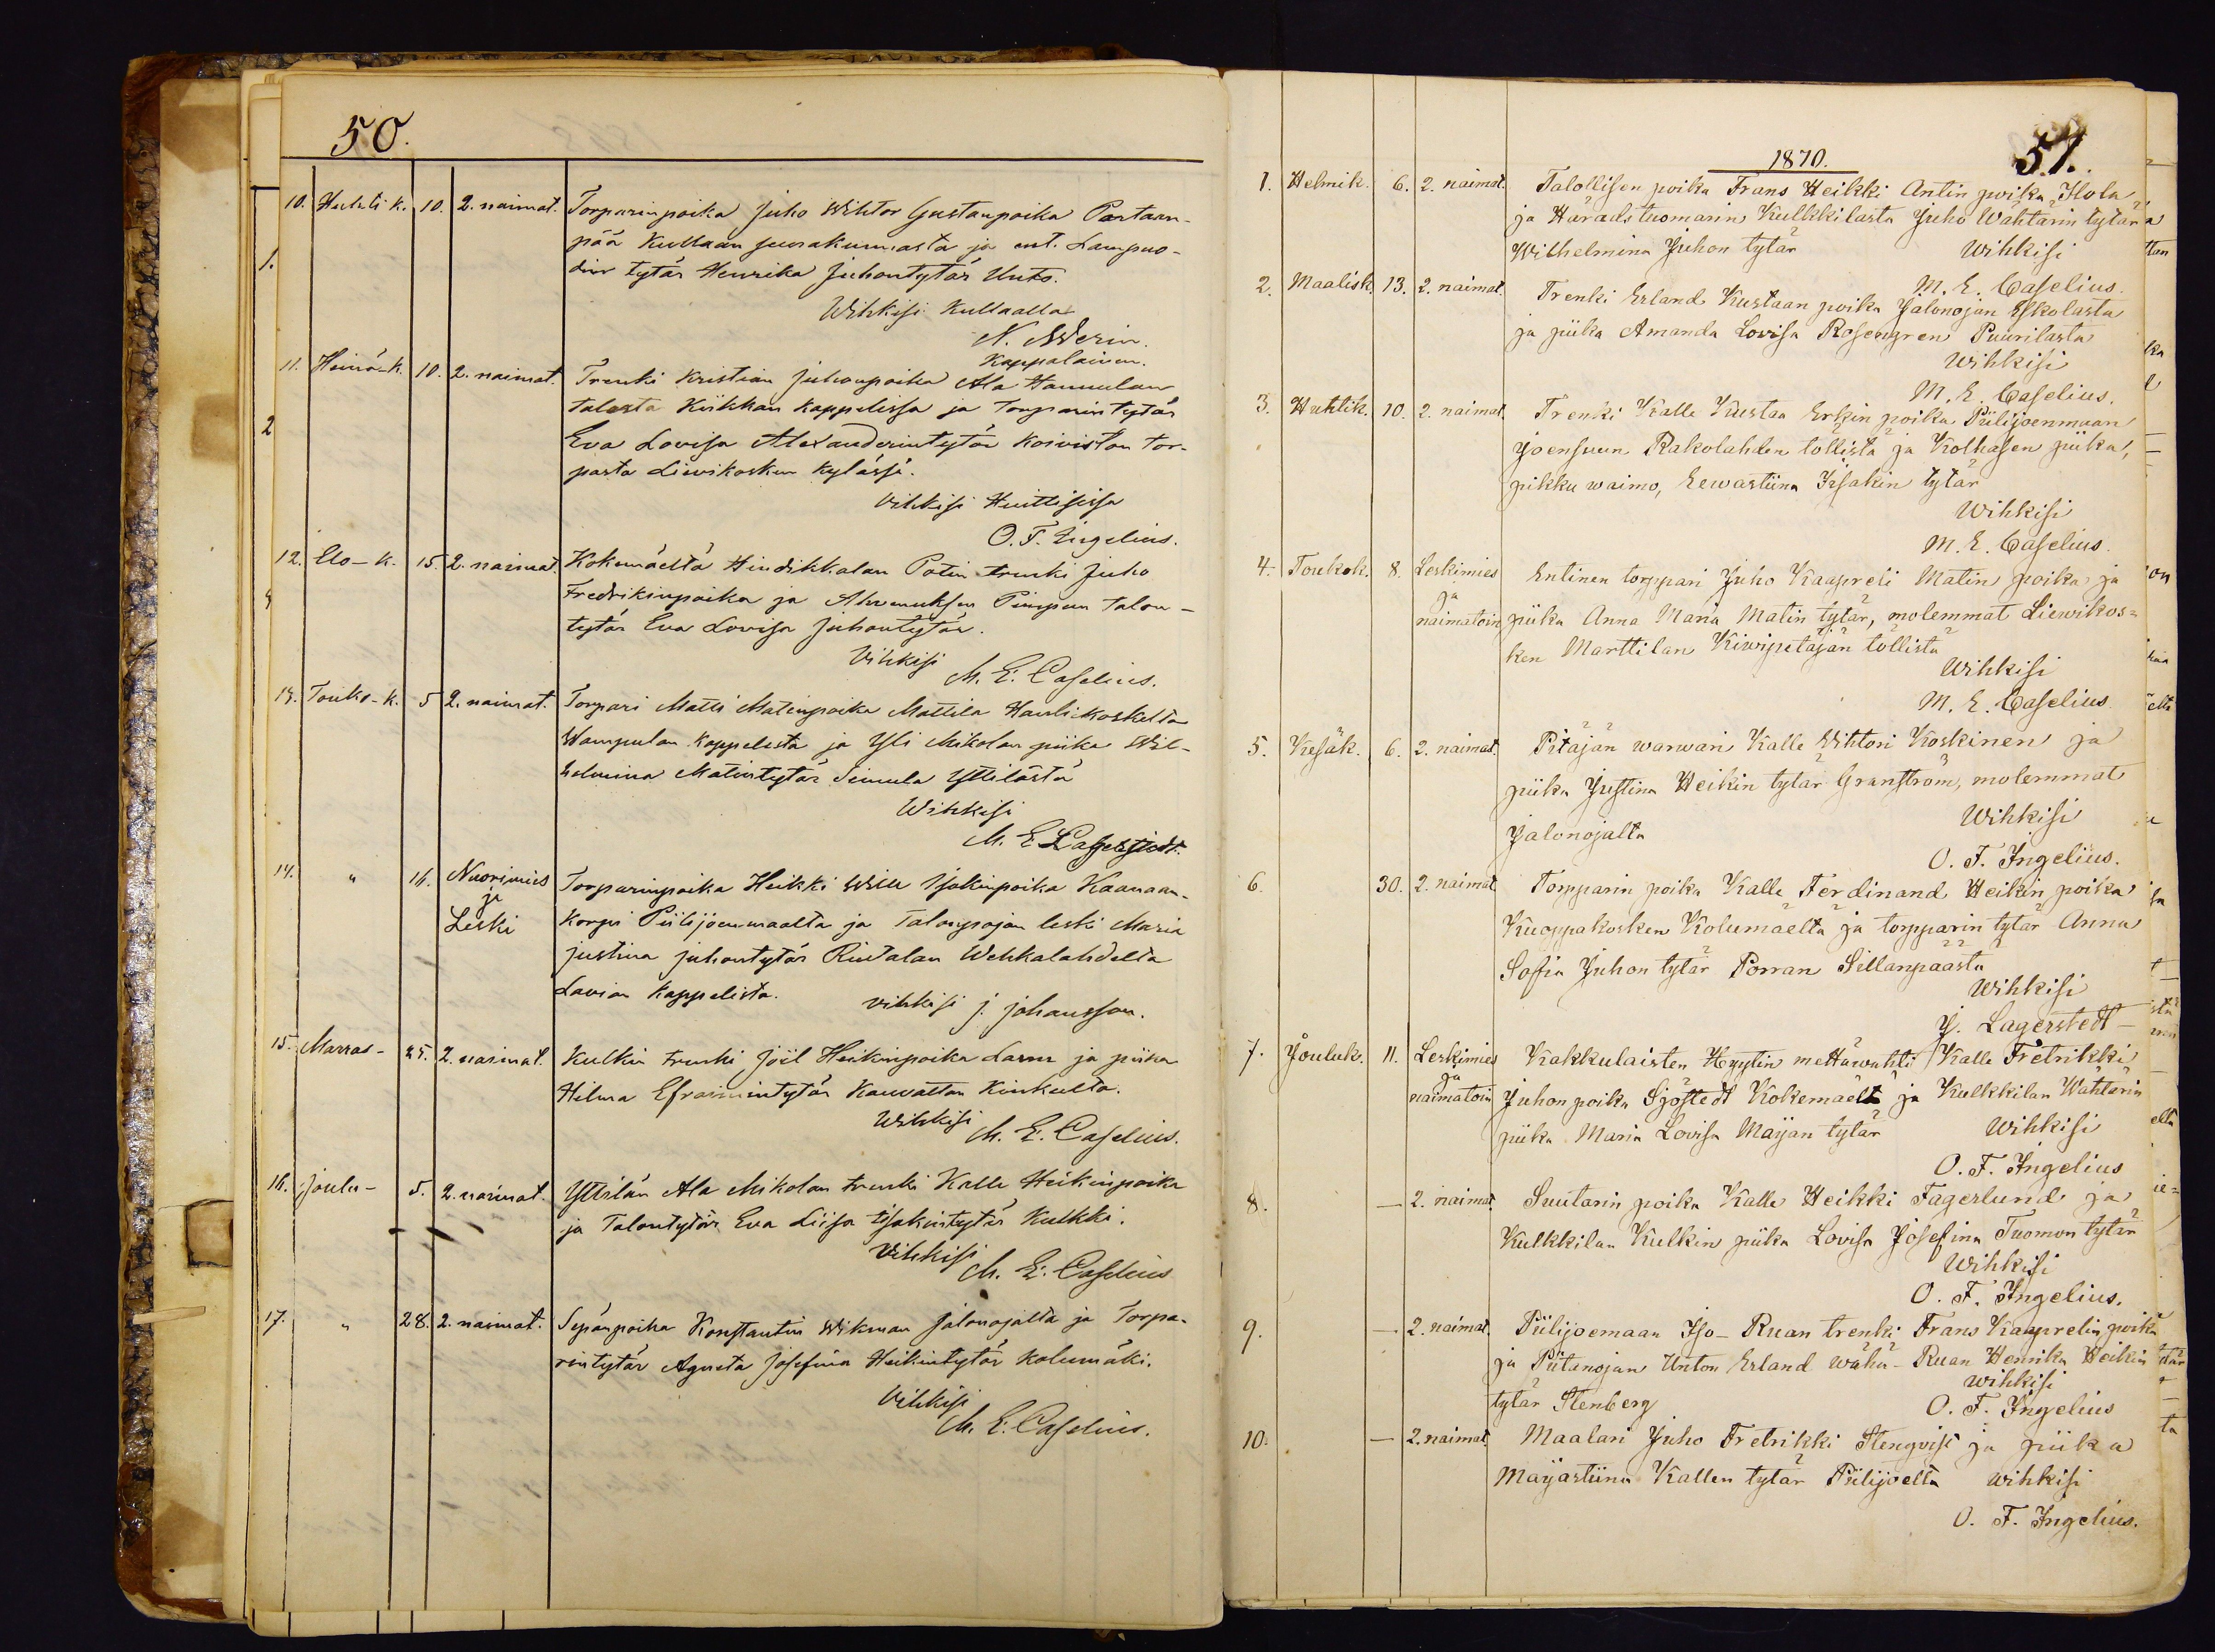 50.
10. Huhti k. 10. 2. naimat. Torparinpoika Juho Wihtor Gustanpoika Partaan-
pää Kullaan seurakunnasta ja ent. Lampuo-
din tytär Henrika Juhontytär Unto.
Wihkisi Kullaalla
N. Merin.
Kappalainen.
11. Heinä-k. 10. 2. naimat. Trenki Kristian Juhonpoika Ala Hannulan
talosta Kiikkan kappelissa ja Torparin tytär
Eva Lovisa Alexanderintytär Koiviston tor-
pasta Liewikosken kylässä.
Vihkisi Huittisissa
O. F. Ingelius.
12. Elo-k. 15. 2. naimat. Kokemäeltä Hindikkalan Potin trenki Juho
Fredrikinpoika ja Ahvenuksen Pimpun talon-
tytär Eva Lovisa Juhontytär.
Vihkisi
M. E. Caselius.
13. Touko-k. 5 2. naimat. Torpari Matti Matinpoika Mattila
Wampulan kappelista ja Yli Mikolan piika Wil-
helmina Matintytär Simula Yttilästä
Wihkisi
M. E. Lagerstedt.
14. " 16. Nuorimies ja Leski Torparinpoika Heikki Wille Isakinpoika Kaanaan-
korpi Piilijoenmaalta ja Talonpojan leski Maria
Justina Juhontytär Rintalan Wehkalahdelta
Lavian kappelista.
vihkisi J. Johansson.
15. Marras- 25. 2. naimat. Kulkin trenki Joël Heikinpoika Larm ja piika
Hilma Efraimintytär Kauvattan Kinkulta.
Wihkisi
M. E. Caselius.
16. Joulu- 5. 2. naimat. Yttilän Ala Mikolan trenki Kalle Heikinpoika
ja Talontytär Eva Liisa Isakintytär Kulkki.
Vihkisi
M. E. Caselius
17. " 28. 2. naimat. Sepänpoika Konstantin Wikman Jalonojalta ja Torpa-
rintytär Agneta Josefina Heikintytär Kolumäki.
Vihkisi
M. E. Caselius.
51.
1870.
1. Helmik. 6. 2. naimat. Talollisen poika Frans Heikki Antin poika Ilola,
ja Härads tuomarin Kulkkilasta Juho Wahtarin tytär
Wilhelmina Juhon tytär Wihkisi
M. E. Caselius.
2. Maalisk. 13. 2. naimat. Trenki Erland Kustaan poika Jalonojan Eskolasta
ja piika Amanda Lovisa Rosengren Puurilasta
Wihkisi
M. E. Caselius.
3. Huhtik. 10. 2. naimat. Trenki Kalle Kustaa Erkin poika Piilijoenmaan
Joensuun Rakolahden töllistä ja Kolhasen piika,
pikku waimo, Eewastiina Isakin tytär
Wihkisi
M. E. Caselius.
4. Toukok. 8. Leskimies ja naimatoin Entinen torppari Juho Kaapreli Matin poika ja
piika Anna Maria Matin tytär, molemmat Liewikos-
ken Marttilan Kiwipetäjän töllistä
Wihkisi
M. E. Caselius
5. Kesäk. 6. 2. naimat. Pitäjän warwari Kalle Wihtori Koskinen ja
piika Justina Heikin tytär Granström, molemmat
Jalonojalta Wihkisi
O. F. Ingelius.
6. 30. 2. naimat Torpparin poika Kalle Ferdinand Heikin poika
Kuoppakosken Kolumäeltä ja torpparin tytär Anna
Sofia Juhon tytär Porran Sillanpäästä
Wihkisi
J. Lagerstedt
7. Jouluk. 11. Leskimies ja naimatoin Kakkulaisten Hyytin mettäwahti Kalle Fretrikki
Juhon poika Sjöstedt Kokemäelt ja Kulkkilan Wahtarin
piika Maria Lovisa Maijan tytär Wihkisi
O. F. Ingelius
8. — 2. naimat. Suutarin poika Kalle Heikki Fagerlund ja
Kulkkilan Kulkin piika Lovisa Josefina Tuomon tytär
Wihkisi
O. F. Ingelius.
9. — 2. naimat. Piilijoemaan Iso-Ruan trenki Frans Kaaprelin poika
ja Piitanojan Unton Erland Wähä-Ruan Henrika Heikin
tytär Stenberg wihkisi
O. F. Ingelius
10. — 2. naimat. Maalari Juho Fretrikki Stengvist ja piika
Maijastiina Kallen tytär Piilijoelta wihkisi
O. F. Ingelius.